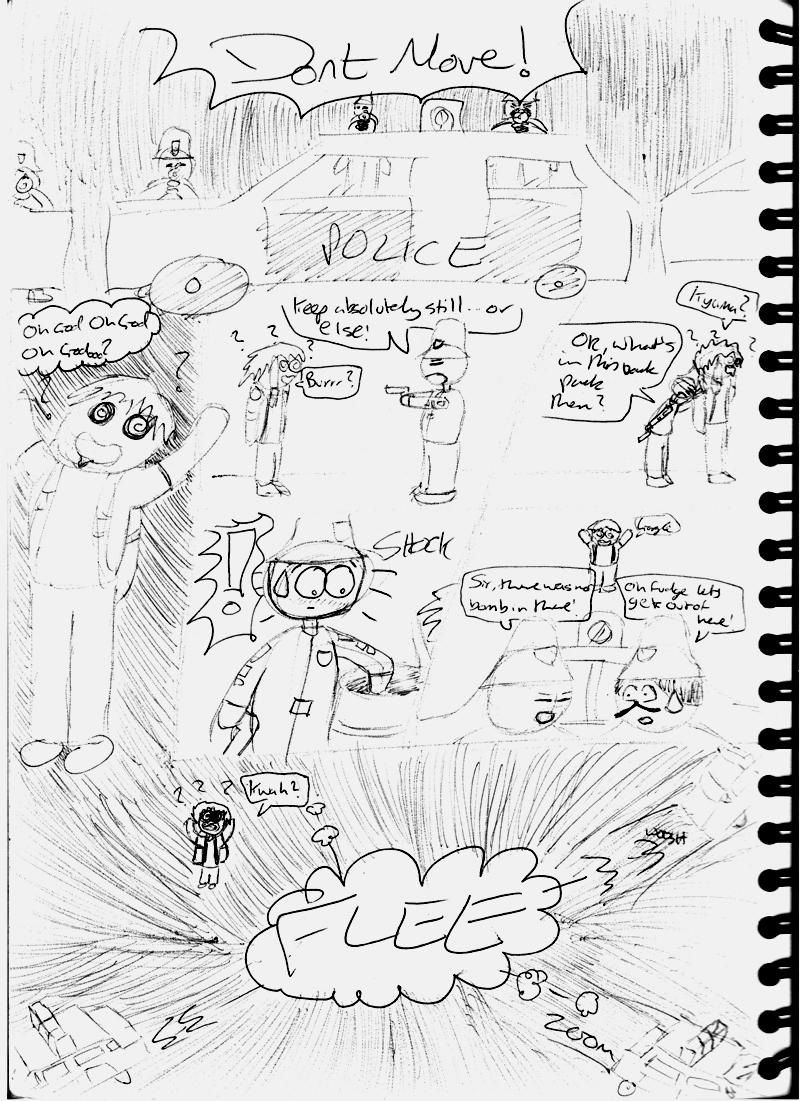 Dont Move!
POLICE
Oh God Oh God
Oh
Keep absolutely still... or
else!
Burrr?
Kyuma?
OK, what's
in this back
pack
then?
!
SHOCK
Sir, there was no
bomb in there!
Oh fudge lets
get out of
here!
? ? ?
Kwah?
WOOSH
FLEE
ZOOM